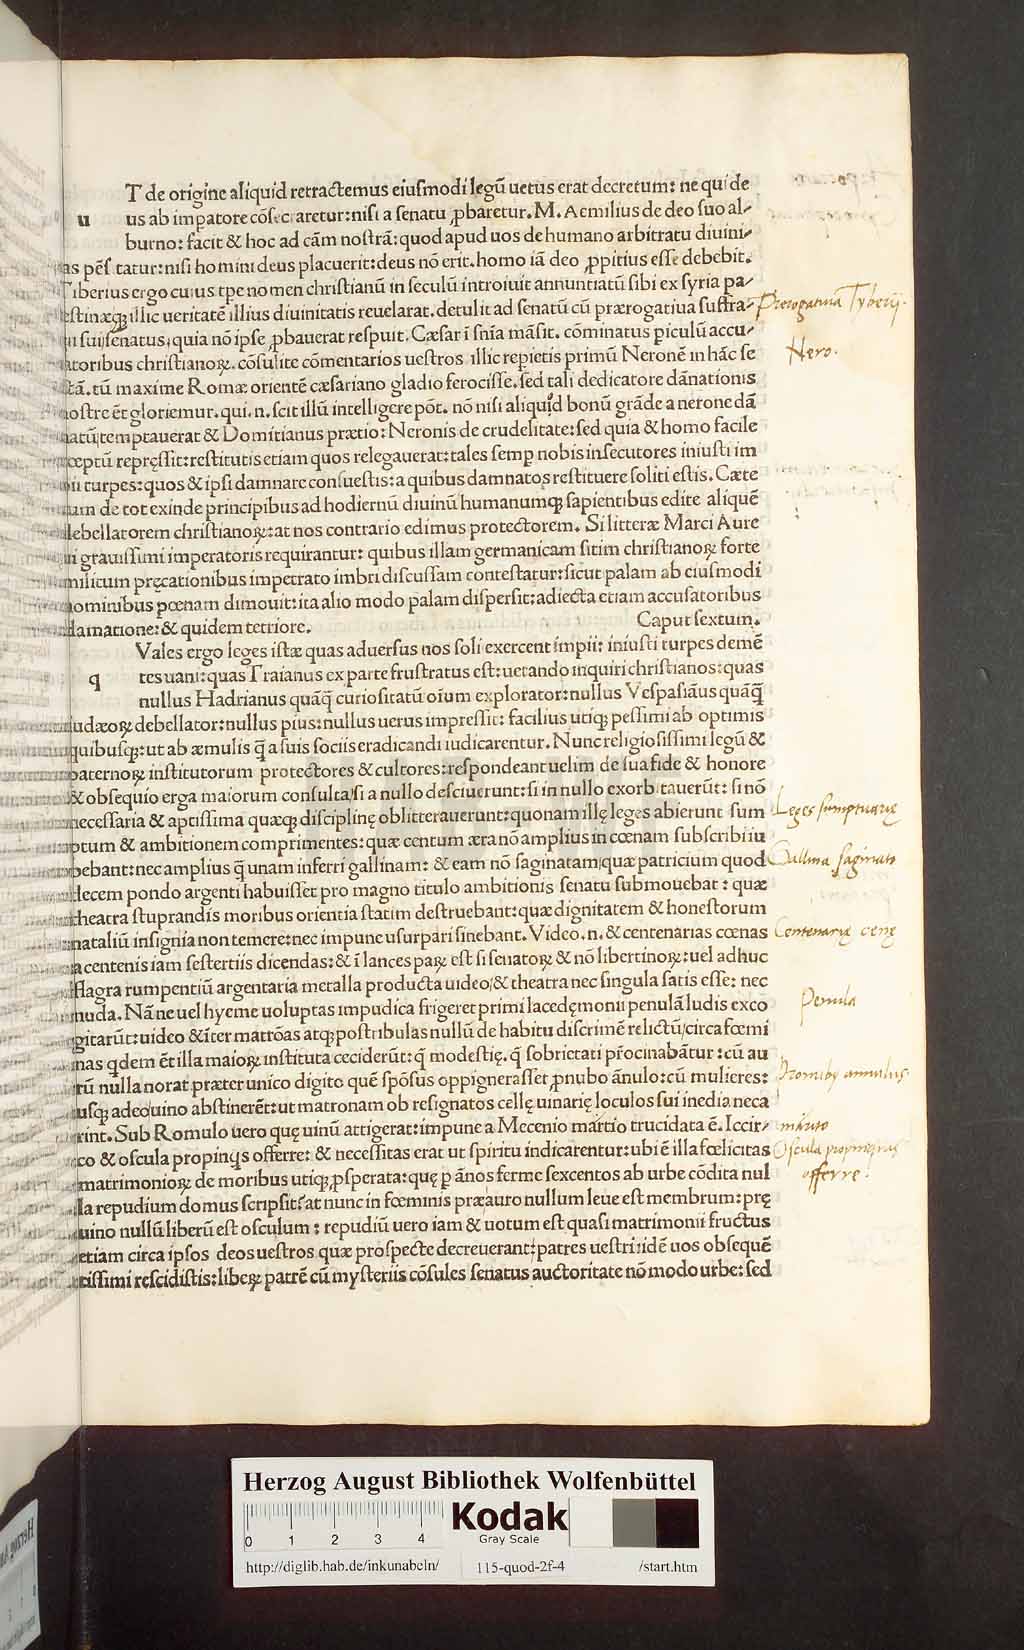 T de origine aliquid retractemus eiuſmodi legū uetus erat decretum: ne qui de
u us ab impatore cōſecraretur: niſi a ſenatu ꝓbaretur. M. Aemilius de deo ſuo al-
burno: facit & hoc ad cām noſtrā: quod apud uos de humano arbitratu diuini-
as pēſtatur: niſi homini deus placuerit: deus nō erit. homo iā deo ꝓpitius eſſe debebit.
Tiberius ergo cuius tpe nomen chriſtianū in ſeculū introiuit annuntiatū ſibi ex ſyria pa-
eſtinæqꝫ illic ueritatē illius diuinitatis reuelarat. detulit ad ſenatū cū prærogatiua ſuffra-
Prerogatiua Tyberij.
ii ſui ſenatus, quia nō ipſe ꝓbauerat reſpuit. Cæſar ī ſnīa māſit. cōminatus piculū accu-
atoribus chriſtianoꝝ. cōſulite cōmentarios ueſtros illic repietis primū Neronē in hāc ſe
Nero.
tā. tū maxime Romæ orientē cæſariano gladio ferociſſe. ſed tali dedicatore dānationis
noſtre ēt gloriemur. qui. n. ſcit illū intelligere pōt. nō niſi aliquid bonū grāde a nerone dā
natū temptauerat & Domitianus prætio: Neronis de crudelitate: ſed quia & homo facile
ceptū repreſſit: reſtitutis etiam quos relegauerat: tales ſemp nobis inſecutores iniuſti im
ii turpes: quos & ipſi damnare conſueſtis: a quibus damnatos reſtituere ſoliti eſtis. Cæte
um de tot exinde principibus ad hodiernū diuinū humanumqꝫ ſapientibus edite aliquē
debellatorem chriſtianoꝝ: at nos contrario edimus protectorem. Si litteræ Marci Aure
ii grauiſſimi imperatoris requirantur: quibus illam germanicam ſitim chriſtianoꝝ forte
militum pręcationibus impetrato imbri diſcuſſam conteſtatur: ſicut palam ab eiuſmodi
hominibus pœnam dimouit: ita alio modo palam diſperſit: adiecta etiam accuſatoribus
damatione: & quidem tetriore. Caput ſextum.
Vales ergo leges iſtæ quas aduerſus nos ſoli exercent impii: iniuſti turpes demē
q tes uani: quas Traianus ex parte fruſtratus eſt: uetando inquiri chriſtianos: quas
nullus Hadrianus quāq̄ curioſitatū oīum explorator: nullus Veſpaſiāus quāq̄
iudæoꝝ debellator: nullus pius: nullus uerus impreſſit: facilius utiqꝫ peſſimi ab optimis
quibuſqꝫ: ut ab æmulis q̄ a ſuis ſociis eradicandi iudicarentur. Nunc religioſiſſimi legū &
paternoꝝ inſtitutorum protectores & cultores: reſpondeant uelim de ſua fide & honore
& obſequio erga maiorum conſulta/ſi a nullo deſciuerunt: ſi in nullo exorbitauerūt: ſi nō
neceſſaria & aptiſſima quæqꝫ diſciplinę oblitterauerunt: quonam illę leges abierunt ſum
Leges ſumptuarię
ptum & ambitionem comprimentes: quæ centum æra nō amplius in cœnam ſubſcribi iu
bebant: nec amplius q̄ unam inferri gallinam: & eam nō ſaginatam: quæ patricium quod
Gallina ſaginata
decem pondo argenti habuiſſet pro magno titulo ambitionis ſenatu ſubmouebat: quæ
theatra ſtuprandis moribus orientia ſtatim deſtruebant: quæ dignitatem & honeſtorum
nataliū inſignia non temere: nec impune uſurpari ſinebant. Video. n. & centenarias cœnas
Centenarię cenę
a centenis iam ſeſtertiis dicendas: & ī lances paꝝ eſt ſi ſenatoꝝ & nō libertinoꝝ: uel adhuc
flagra rumpentiū argentaria metalla producta uideo/& theatra nec ſingula ſatis eſſe: nec
nuda. Nā ne uel hyeme uoluptas impudica frigeret primi lacedęmonii penulā ludis exco
Penula
gitarūt: uideo & īter matrōas atqꝫ poſtribulas nullū de habitu diſcrimē relictū/circa fœmi
nas qdem ēt illa maioꝝ inſtituta ceciderūt: q̄ modeſtię. q̄ ſobrietati pr̄ocinabāntur: cū au
rū nulla norat præter unico digito quē ſpōſus oppigneraſſet ꝓnubo ānulo: cū mulieres:
Pronubus annulus.
uſqꝫ adeo uino abſtinerēt: ut matronam ob reſignatos cellę uinarię loculos ſui inedia neca
rint. Sub Romulo uero quę uinū attigerat: impune a Mecenio maritio trucidata ē. Iccir-
marito
co & oſcula propinqs offerre: & neceſſitas erat ut ſpiritu indicarentur: ubi ē illa fœlicitas
Oſcula propinquis
offerre.
matrimonioꝝ de moribus utiqꝫ ꝓſperata: quę p ānos ferme ſexcentos ab urbe cōdita nul
la repudium domus ſcripſit: at nunc in fœminis præ auro nullum leue eſt membrum: prę
uino nullū liberū eſt oſculum: repudiū uero iam & uotum eſt quaſi matrimonii fructus
etiam circa ipſos deos ueſtros quæ proſpecte decreuerant: patres ueſtri iidē uos obſequē
tiſſimi reſcidiſtis: libeꝝ patrē cū myſteriis cōſules ſenatus auctoritate nō modo urbe: ſed
HAB-WF
Herzog August Bibliothek Wolfenbüttel
0 1 2 3 4
Kodak
Gray Scale
http://diglib.hab.de/inkunabeln/ 115-quod-2f-4 /start.htm